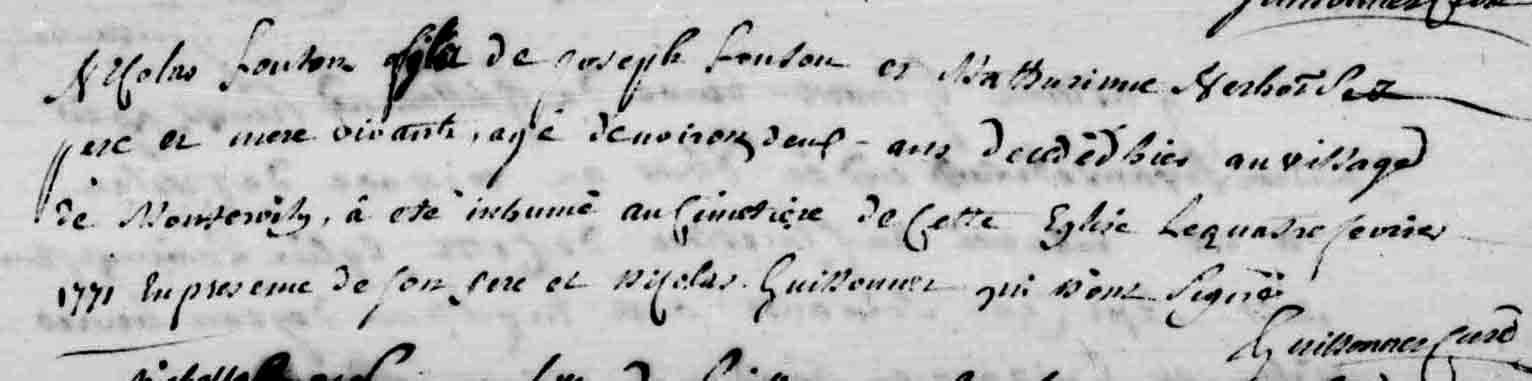 Nicolas fouson fils de joseph fouson et Mathurinne
pere et mere vivants, agé denviron deux ans decedé hier au village
de , a eté inhumé au Cimetière de Cette Eglise Le quatre fevrier
1771 En presence de son pere et nicolas Guillonnet qui n'ont Signé
Guillonnet Curé